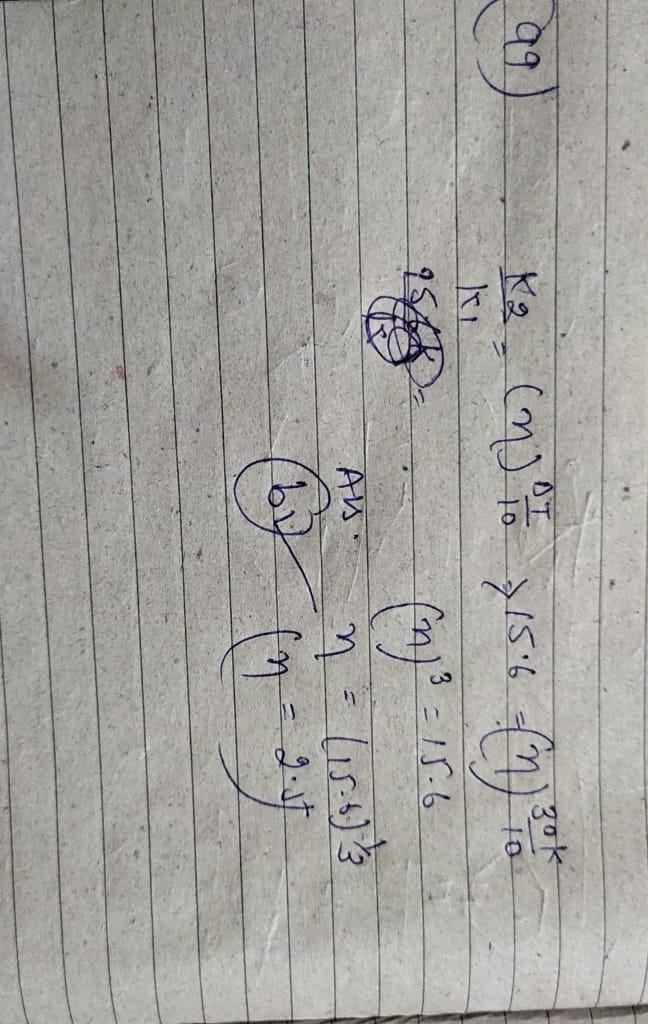 99)
K2/K1 = (η)^ΔT/10 ⇒ 15.6 = (η)^30K/10
(η)^3 = 15.6
Ans. η = (15.6)^1/3
b) (η = 2.5)